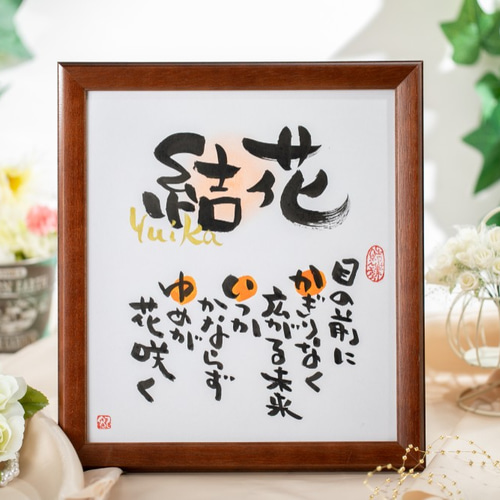 結花
Yuika
目の前に
かぎりなく
広がる未来
いつか
かならず
ゆめが
花咲く